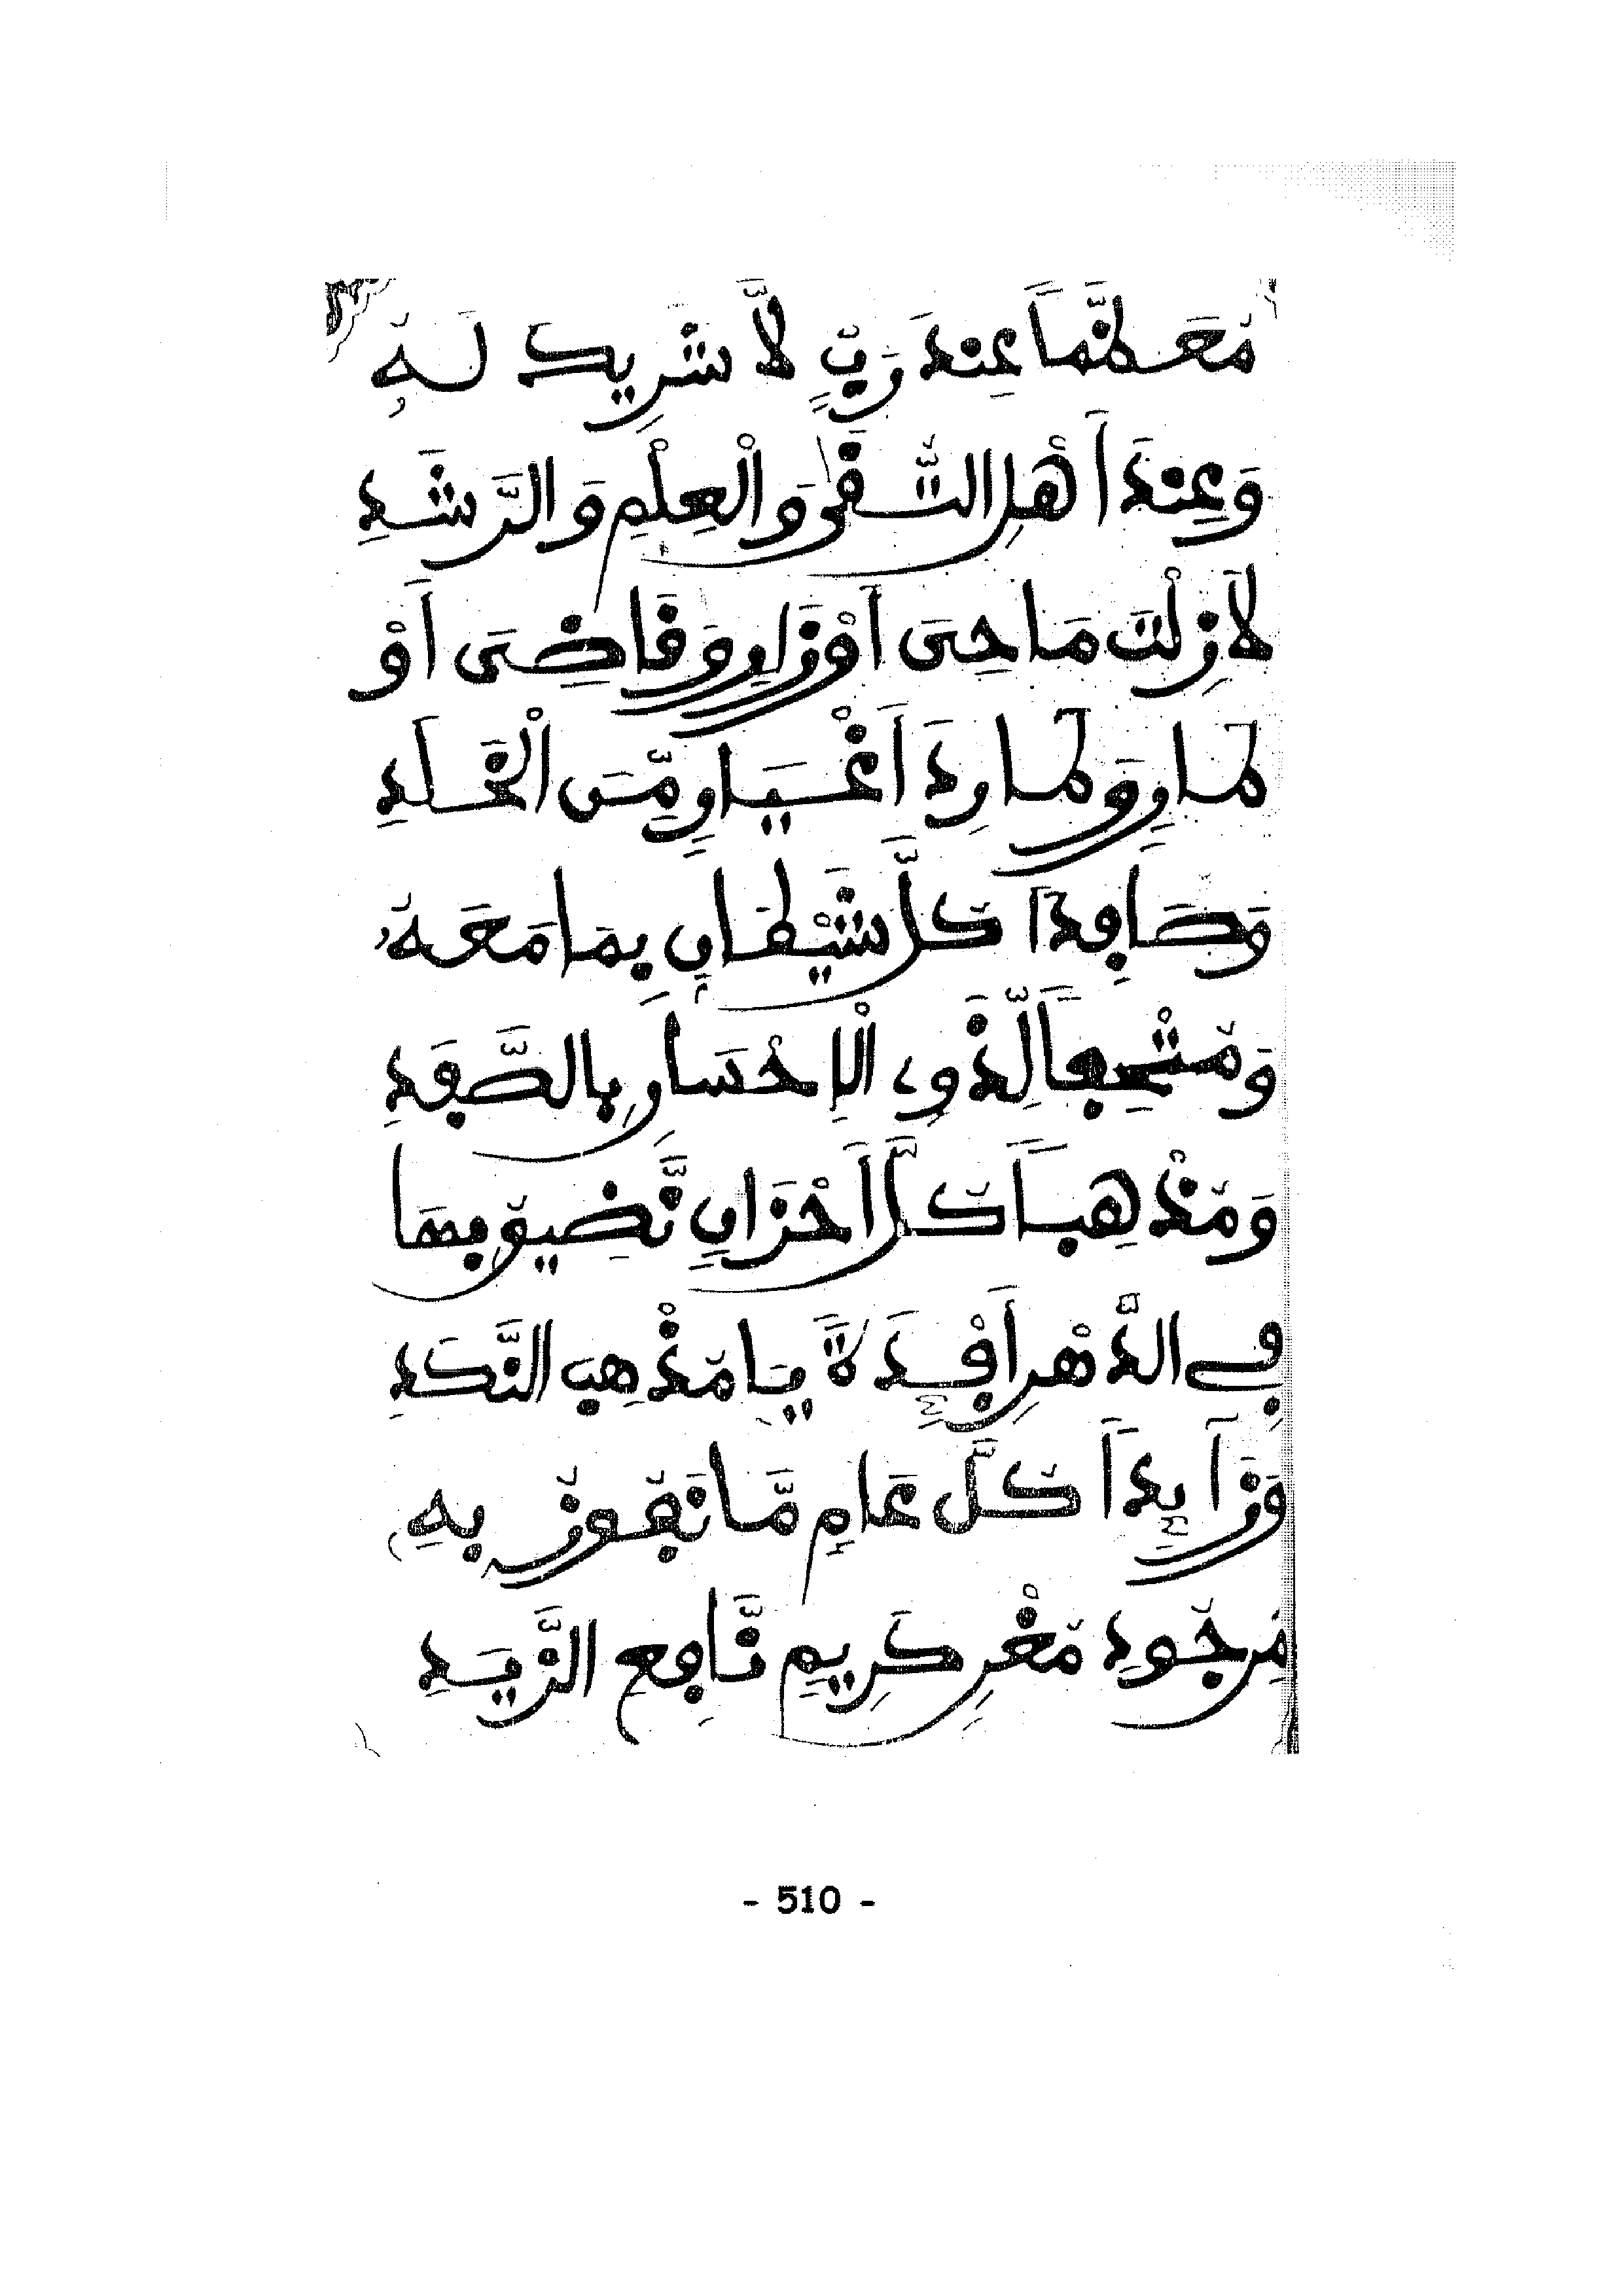 مُعَظَّماً عِندَ رَبٍّ لاَّ شَرِيكَ لَهُ
وَعِندَ أَهْلِ التُّقَى وَالْعِلْمِ وَالرَّشَدِ
لاَزِلْتَ مَاحِيَ أَوْزَارٍ وَفَاضِيَ أَوْ
طَارٍ وَطَارِدَ أَغْيَارٍ مِّنَ الْخَلَدِ
وَصَافِداً كُلَّ شَيْطَانٍ بِمَا مَعَهُ
وَمُتْحِفاً لِّذَوِي الْإِحْسَانِ بِالصَّفَدِ
وَمُذْهِباً كُلَّ أَحْزَانٍ تَّضِيقُ بِهَا
فِي الدَّهْرِ أَفْئِدَةٌ يَا مُذْهِبَ النَّكَدِ
وَزَآئِداً كُلَّ عَامٍ مَّا تَفُوزُ بِهِ
مِن جُودِ مُغْنٍ كَرِيمٍ نَّافِعِ الزَّيَدِ
- 510 -